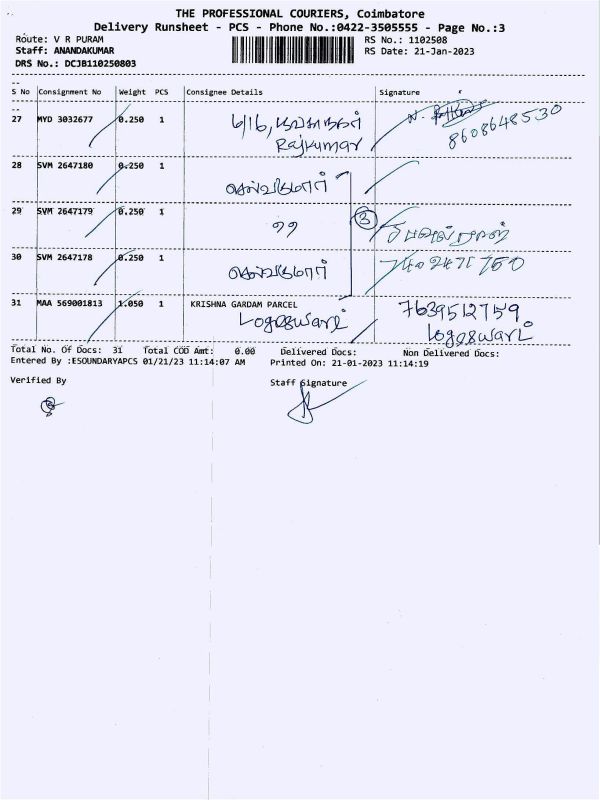 THE PROFESSIONAL COURIERS, Coimbatore
Delivery Runsheet - PCS - Phone No.:0422-3505555 - Page No.:3
Route: V R PURAM
RS No.: 1102508
Staff: ANANDAKUMAR
RS Date: 21-Jan-2023
DRS No.: DCJB110250803
S No Consignment No Weight PCS Consignee Details Signature
27 MYD 3032677 0.250 1 6/16,
Rajkumar
8608648530
28 SVM 2647180 0.250 1
செல்வகுமார்
29 SVM 2647179 0.250 1 ,,
3
30 SVM 2647178 0.250 1
செல்வகுமார்
31 MAA 569001813 1.050 1 KRISHNA GARDAM PARCEL 7639512759
Logeswari Logeswari
Total No. Of Docs: 31 Total COD Amt: 0.00 Delivered Docs: Non Delivered Docs:
Entered By :ESOUNDARYAPCS 01/21/23 11:14:07 AM Printed On: 21-01-2023 11:14:19
Verified By Staff Signature